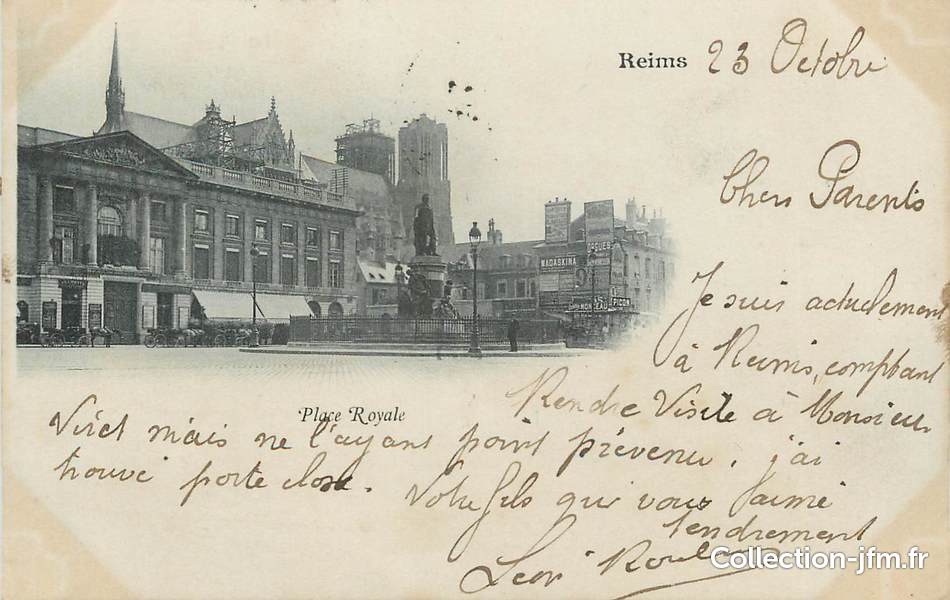 Reims 23 Octobre
Chers Parents
Je suis actuellement
à Reims, comptant
Rendre Visite à Monsieur
Place Royale
Viret mais ne l'ayant point prévenu, j'ai
trouvé porte close. Votre fils qui vous aime
tendrement
Léon
MADASKINA
PICON
Collection-jfm.fr